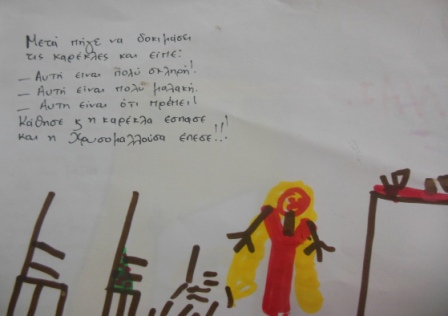 Μετά πήγε να δοκιμάσει
τις καρέκλες και είπε:
– Αυτή είναι πολύ σκληρή!
– Αυτή είναι πολύ μαλακή.
– Αυτη είναι ότι πρέπει!
Κάθησε ς η καρέκλα έσπασε
και η Χρυσομαλλούσα έπεσε..!!!